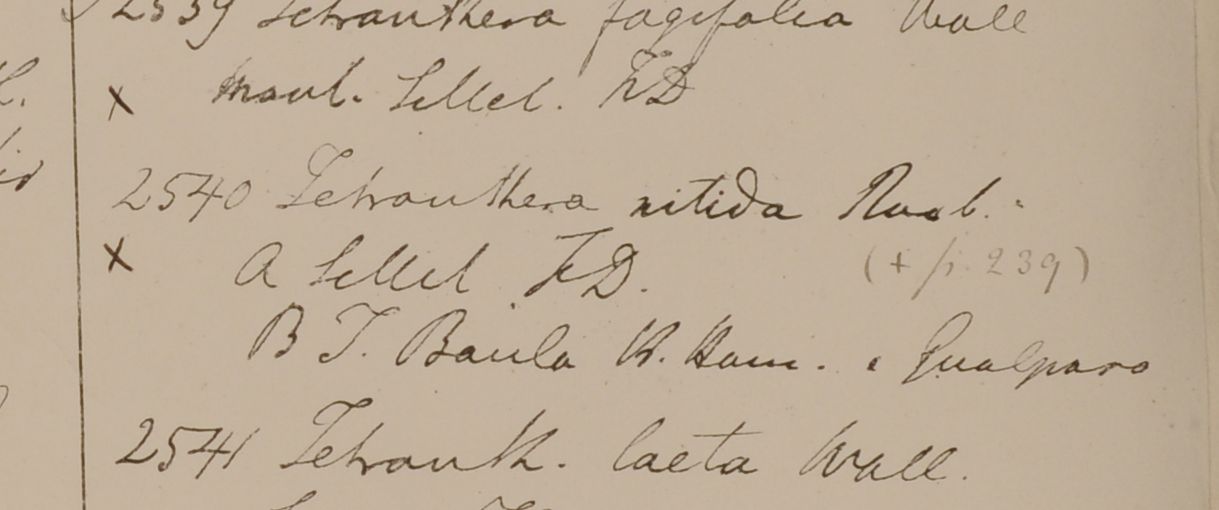 2539 Tetranthera fagifolia Wall
x mont. Sillet. FD
2540 Tetranthera nitida Roxb.
x A Sillet FD. (+ p. 239)
B T. Baula H. Ham. e Gualpara
2541 Tetranth. laeta Wall.